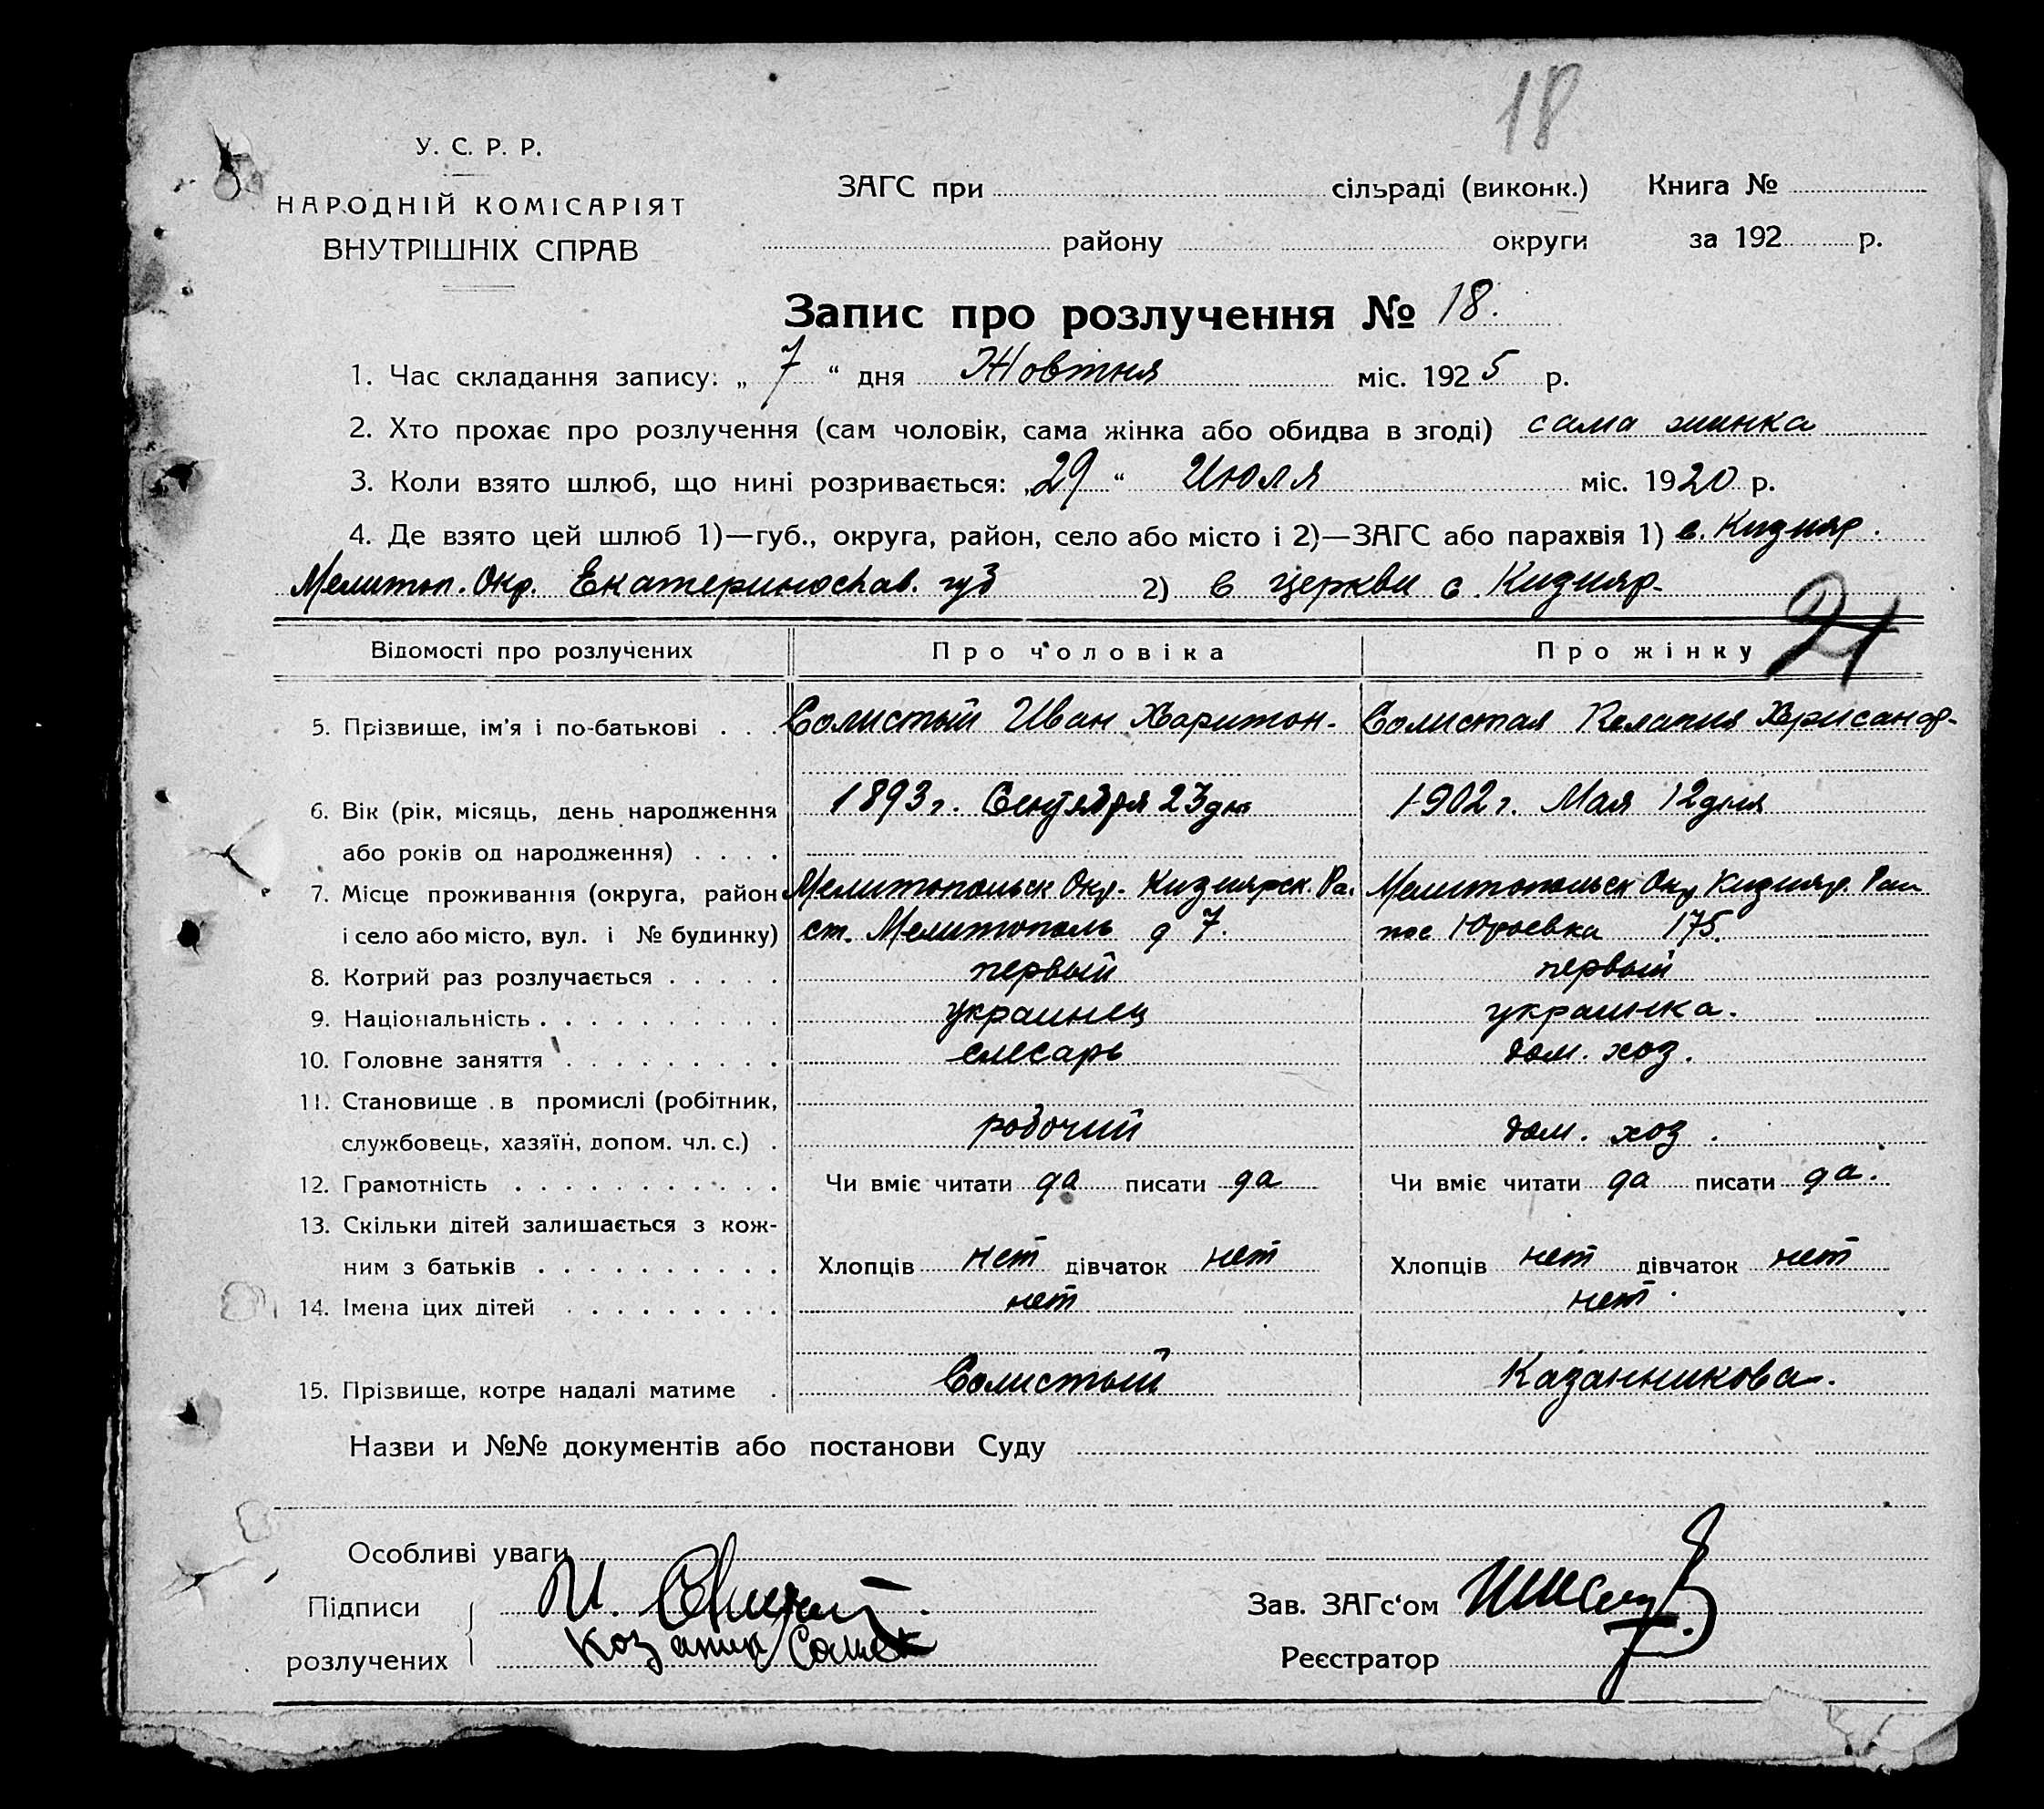 18
У. С. Р. Р.
НАРОДНІЙ КОМІСАРІЯТ
ВНУТРІШНІХ СПРАВ
ЗАГС при сільраді (виконк.) Книга №
району округи за 192 р.
Запис про розлучення № 18.
1. Час складання запису: „ 7 “ дня Жовтня міс. 1925 р.
2. Хто прохає про розлучення (сам чоловік, сама жінка або обидва в згоді) сама жинка
3. Коли взято шлюб, що нині розривається: „29“ Июля міс. 1920 р.
4. Де взято цей шлюб 1)—губ., округа, район, село або місто і 2)—ЗАГС або парахвія 1) с. Кизияр.
Мелитоп. Окр. Екатеринослав. губ 2) в церкви с. Кизияр.
21
Відомості про розлучених Про чоловіка Про жінку
5. Прізвище, ім'я і по-батькові . . . Солистый Иван Харитон. Солистая Хрисанф.
6. Вік (рік, місяць, день народження 1893 г. Сентября 23 дня 1902 г. Мая 12 дня
або років од народження) . . . .
7. Місце проживання (округа, район Мелитопольск Окр. Кизиярск. Ра. Мелитопольск Окр Кизияр. Рай
і село або місто, вул. і № будинку) ст. Мелитополь д 7. пос Юрьевка 175.
8. Котрий раз розлучається . . . . . первый первый
9. Національність . . . . . . . . . . украинец украинка.
10. Головне заняття . . . . . . . . . слесарь дом. хоз.
11. Становище в промислі (робітник,
службовець, хазяїн, допом. чл. с.) . робочий дом. хоз.
12. Грамотність . . . . . . . . . . . Чи вміє читати да писати да Чи вміє читати да писати да.
13. Скільки дітей залишається з кож-
ним з батьків . . . . . . . . . . Хлопців нет дівчаток нет Хлопців нет дівчаток нет
14. Імена цих дітей . . . . . . . . . нет нет.
15. Прізвище, котре надалі матиме . Солистый Казанникова.
Назви и №№ документів або постанови Суду
Особливі уваги
Підписи И. Зав. ЗАГс‘ом
розлучених Реєстратор